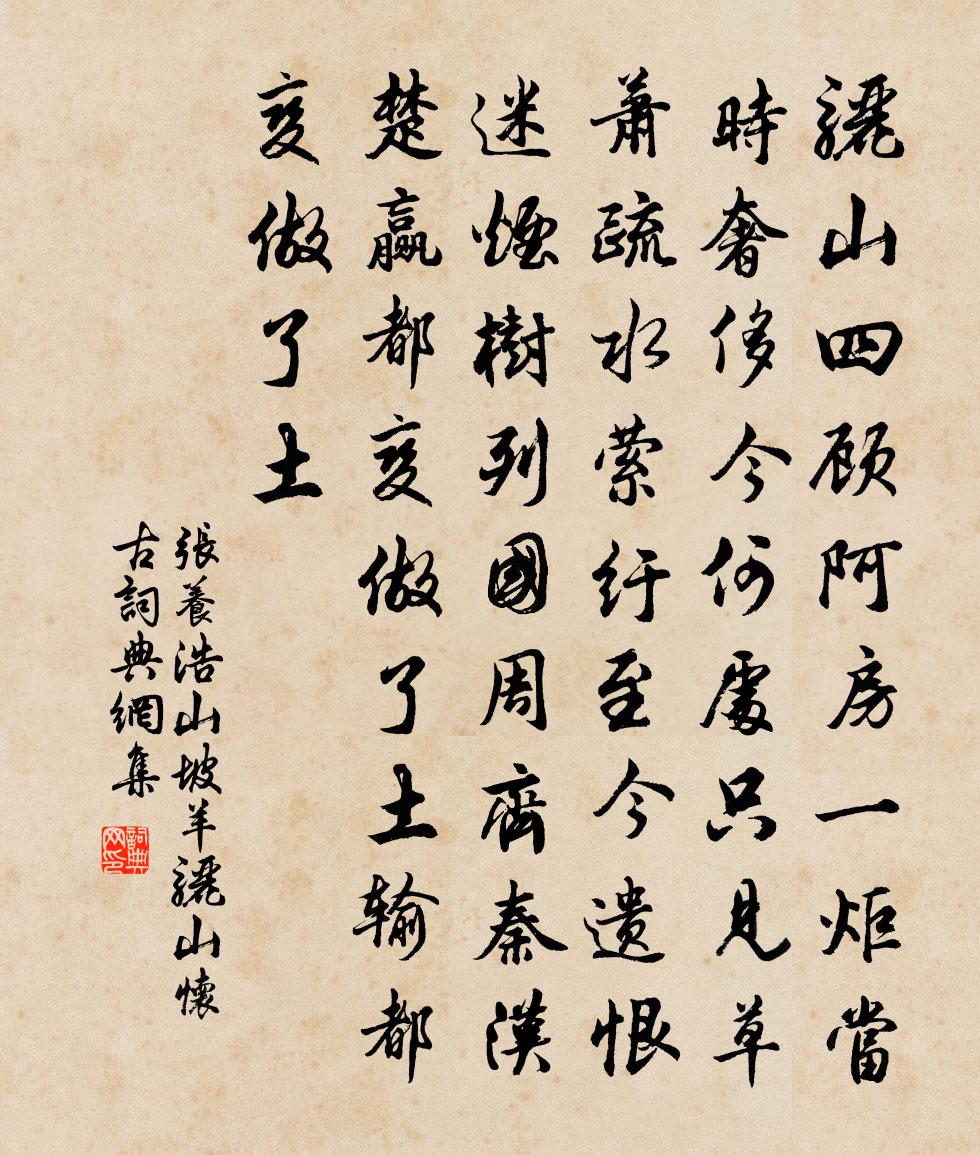 驪山四顧阿房一炬當
時奢侈今何處只見草
蕭疏水縈紆至今遺恨
迷煙樹列國周齊秦漢
楚贏都變做了土輸都
變做了土
張養浩山坡羊驪山懷
古詞典網集
詞典网印